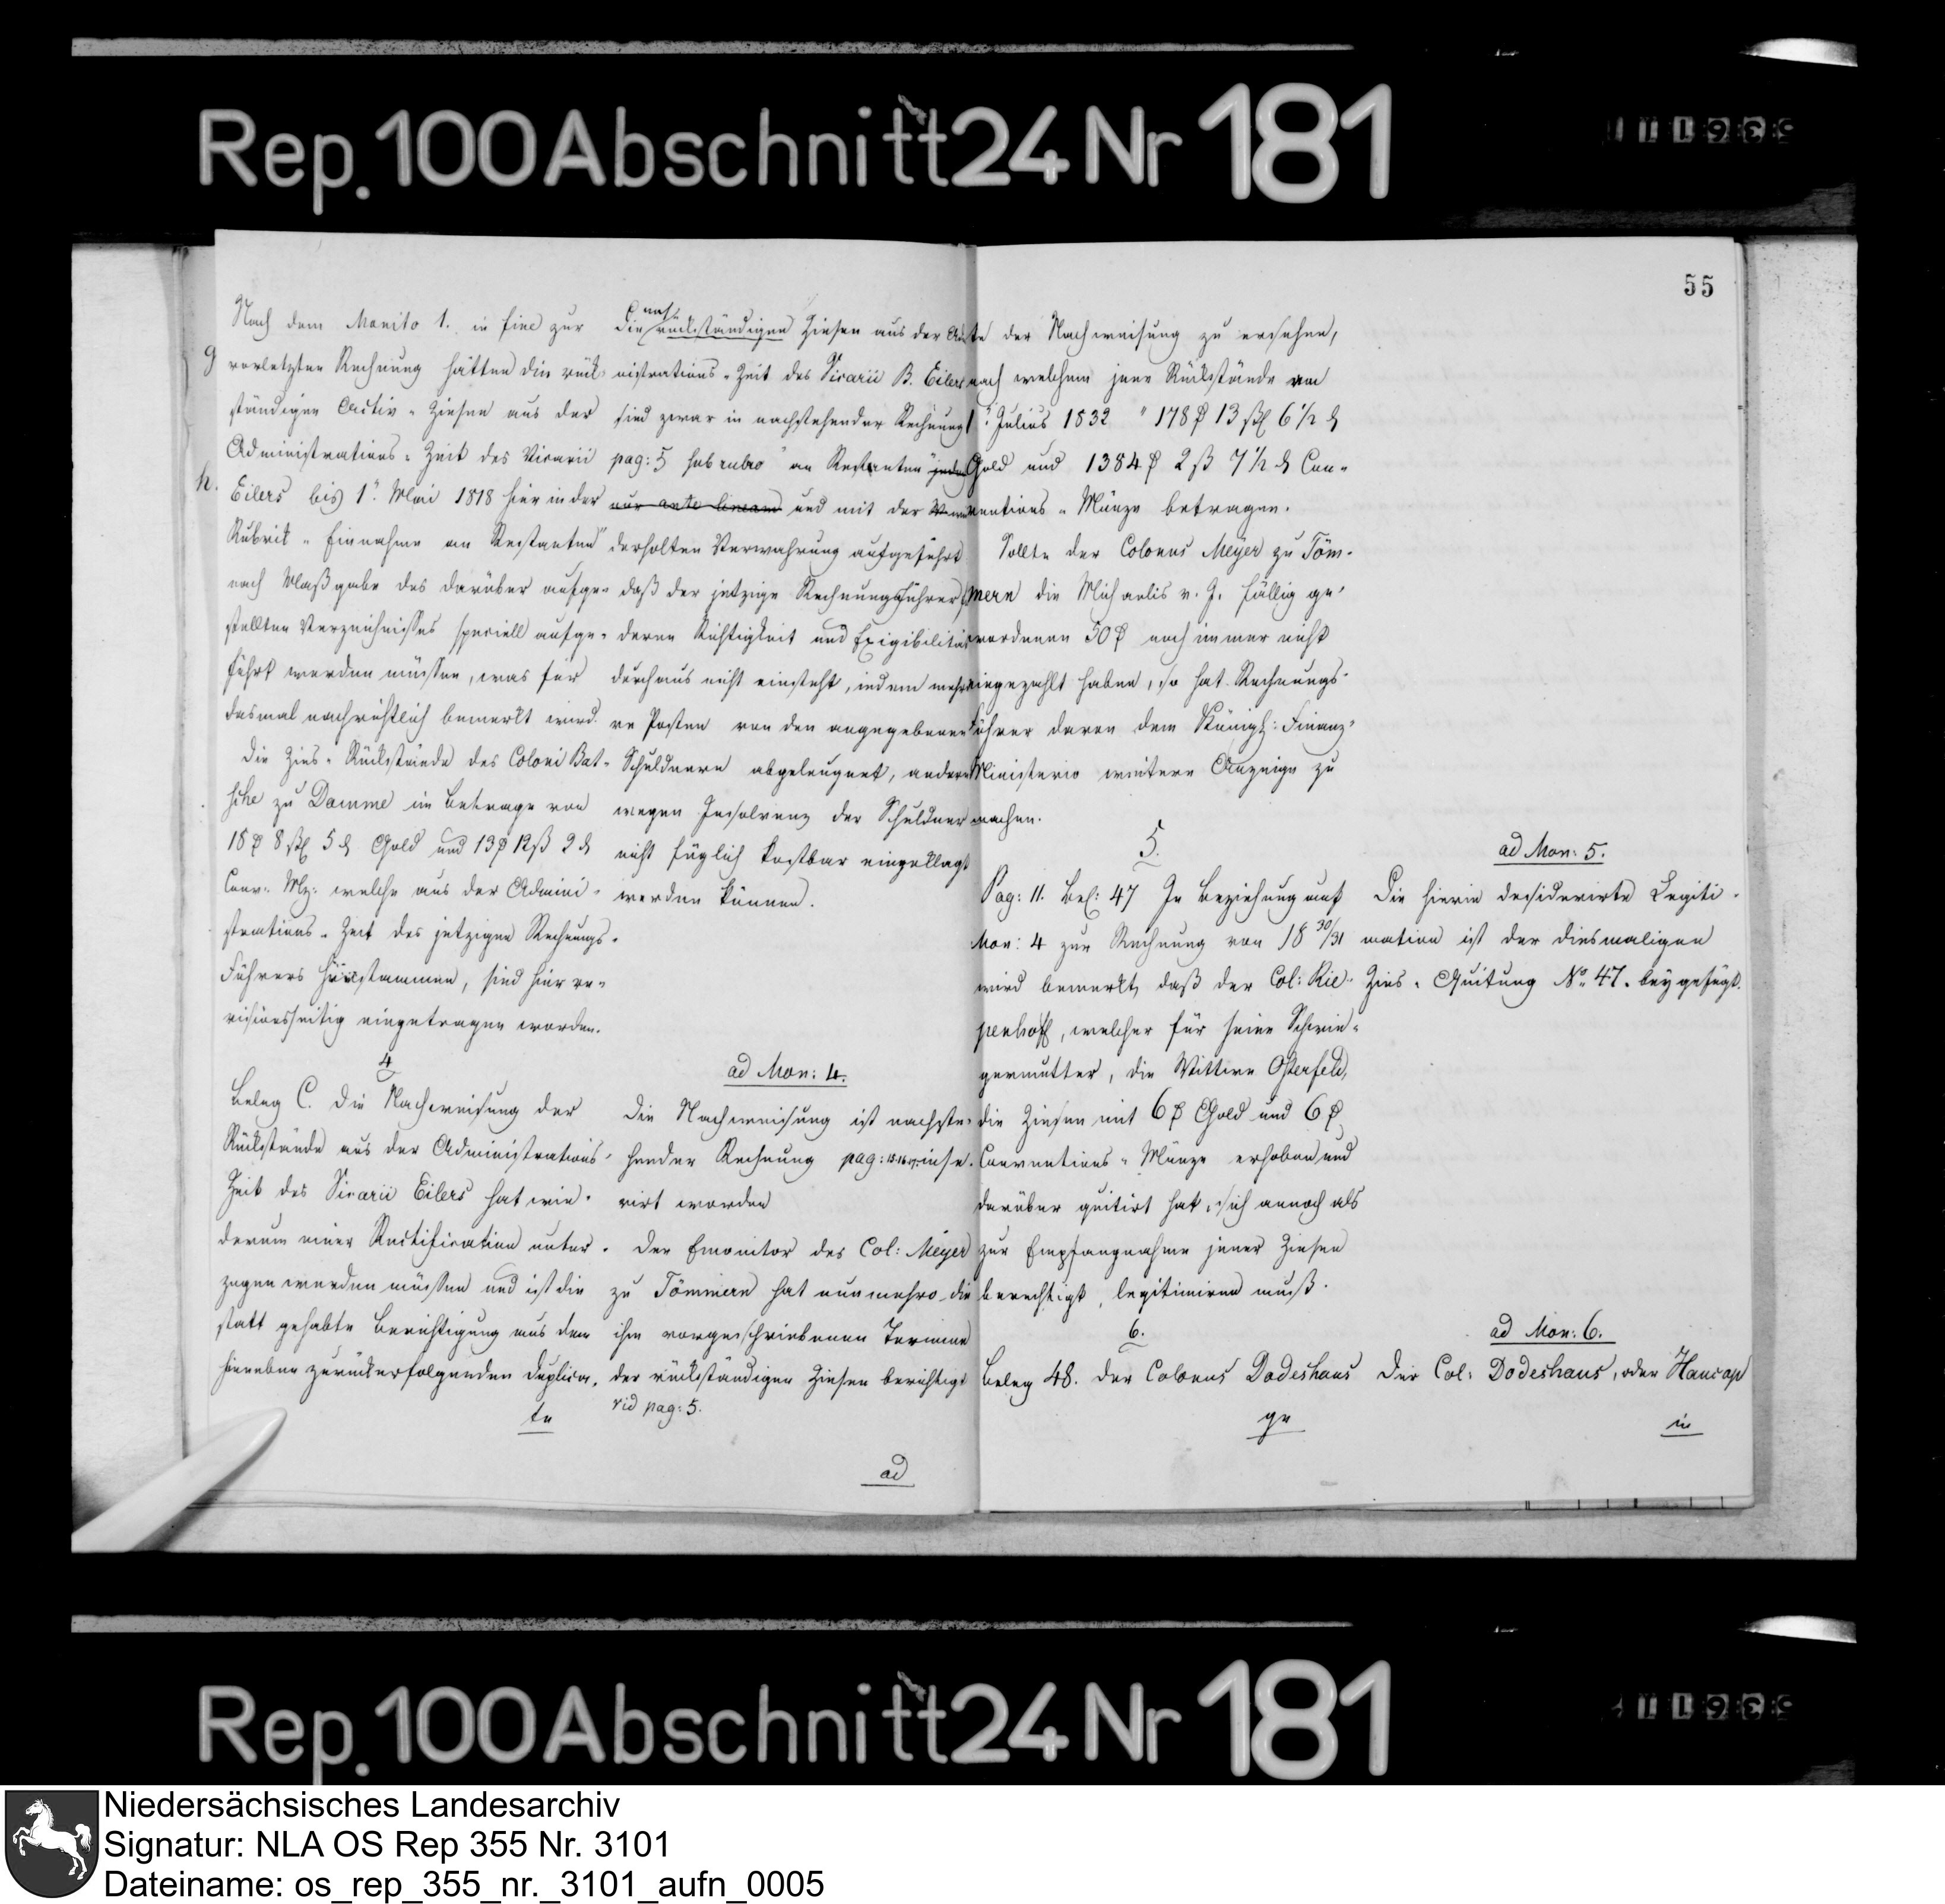 Rep. 100 Abschnitt 24 Nr 181
55
Nach dem Monito 1. in fine zur
g vorletzten Rechnung hätten die rük-
ständigen Activ-Zinsen aus der
Administrations-Zeit des Vicarii
h. Eilers bis 1n. Mai 1818 hier in der
Rubrik „Einnahme an Restanten"
nach Maßgabe des darüber aufge-
stellten Verzeichnisses speciell aufge-
führt werden müssen, was für
dasmal nachrichtlich bemerkt wird.
Die Zins-Rükstände des Coloni Bat-
sche zu Damme im Betrage von
18 ß 5 d Gold und 13 12 ß 2 d
Conv: Mz: welche aus der Admini-
strations-Zeit des jetzigen Rechnungs-
Führers herstammen, sind hier re-
visionsseitig eingetragen worden.
4
Beleg C. Die Nachweisung der
Rükstände aus der Administrations-
Zeit des Vicarii Eilers hat wie-
derum einer Rectification unter-
zogen werden müssen und ist die
statt gehabte Berichtigung aus dem
hierneben zurückerfolgenden Duplica-
te
Die rükständigen Zinsen aus der Admi
nistrations-Zeit des Vicarii B. Eilers
sind zwar in nachstehender Rechnung
pag: 5 sub rubro „an Restanten"
nur ante lineam und mit der wie
derholten Verwahrung aufgeführt
daß der jetzige Rechnungsführer für
deren Richtigkeit und Exigibilität
durchaus nicht einsteht, indem mehre
re Posten von den angegebenen
Schuldnern abgeleugnet, andere
wegen Insolvenz der Schuldner
nicht füglich kostbar eingeklagt
werden können.
ad Mon: 4.
Die Nachweisung ist nachste-
hender Rechnung pag: 15.16.17. inse-
rirt worden
Der Emonitor des Col: Meyer
zu Tömmern hat nunmehro die
ihm vorgeschriebenen Termine
der rükständigen Zinsen berichtigt
vid pag: 5.
ad
te der Nachweisung zu ersehen,
nach welchem jene Rückstände am
1n. Julius 1832 178 13 ß 6 1/2 d
Gold und 1384 2 ß 7 1/2 d Con-
ventions-Münze betragen.
Sollte der Colonus Meyer zu Töm-
mern die Michaelis v. J. fällig ge-
wordenen 50 noch immer nicht
eingezahlt haben, so hat Rechnungs-
führer davon dem Königl: Finanz-
Ministerio weitere Anzeige zu
machen.
5.
Pag: 11. Bel: 47 In Beziehung auf
Mon: 4 zur Rechnung von 18 30/31
wird bemerkt, daß der Col: Rie-
penhoff, welcher für seine Schwie-
germutter, die Wittwe Osterfeld,
die Zinsen mit 6 Gold und 6
Conventions-Münze erhoben und
darüber quitirt hat, sich annoch als
zur Empfangnahme jener Zinsen
berechtigt, legitimiren muß.
6.
Beleg 48. Der Colonus Dodeshaus
ge
ad Mon: 5.
Die hierin desiderirte Legiti-
mation ist der diesmaligen
Zins-Quitung No. 47. beygefügt.
ad Mon: 6.
Der Col: Dodeshaus, oder Haucap
in
Rep. 100 Abschnitt 24 Nr 181
Niedersächsisches Landesarchiv
Signatur: NLA OS Rep 355 Nr. 3101
Dateiname: os_rep_355_nr._3101_aufn_0005